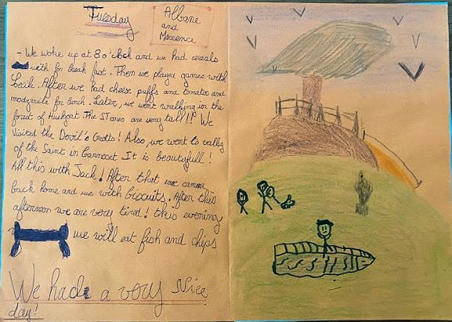 Tuesday
Albane
and
Maxence
- We woke up at 8 o'clock and we had cereals
with for break fast. Then we played games with
Jack. After we had chese puffs and tomatoe and
modzarela for lunch. Later, we went walking in the
forest of Huelgoat. The stones are very tall!! We
Visited the Devil's Grotto! Also, we went to valley
of the Saint in Carnoet. It is beautyfull!
All this with Jack! After that we came
back home and we with biscuits. After this
afternoon we are very tired! this evening
we will eat fish and chips
We had a very Nice
day!